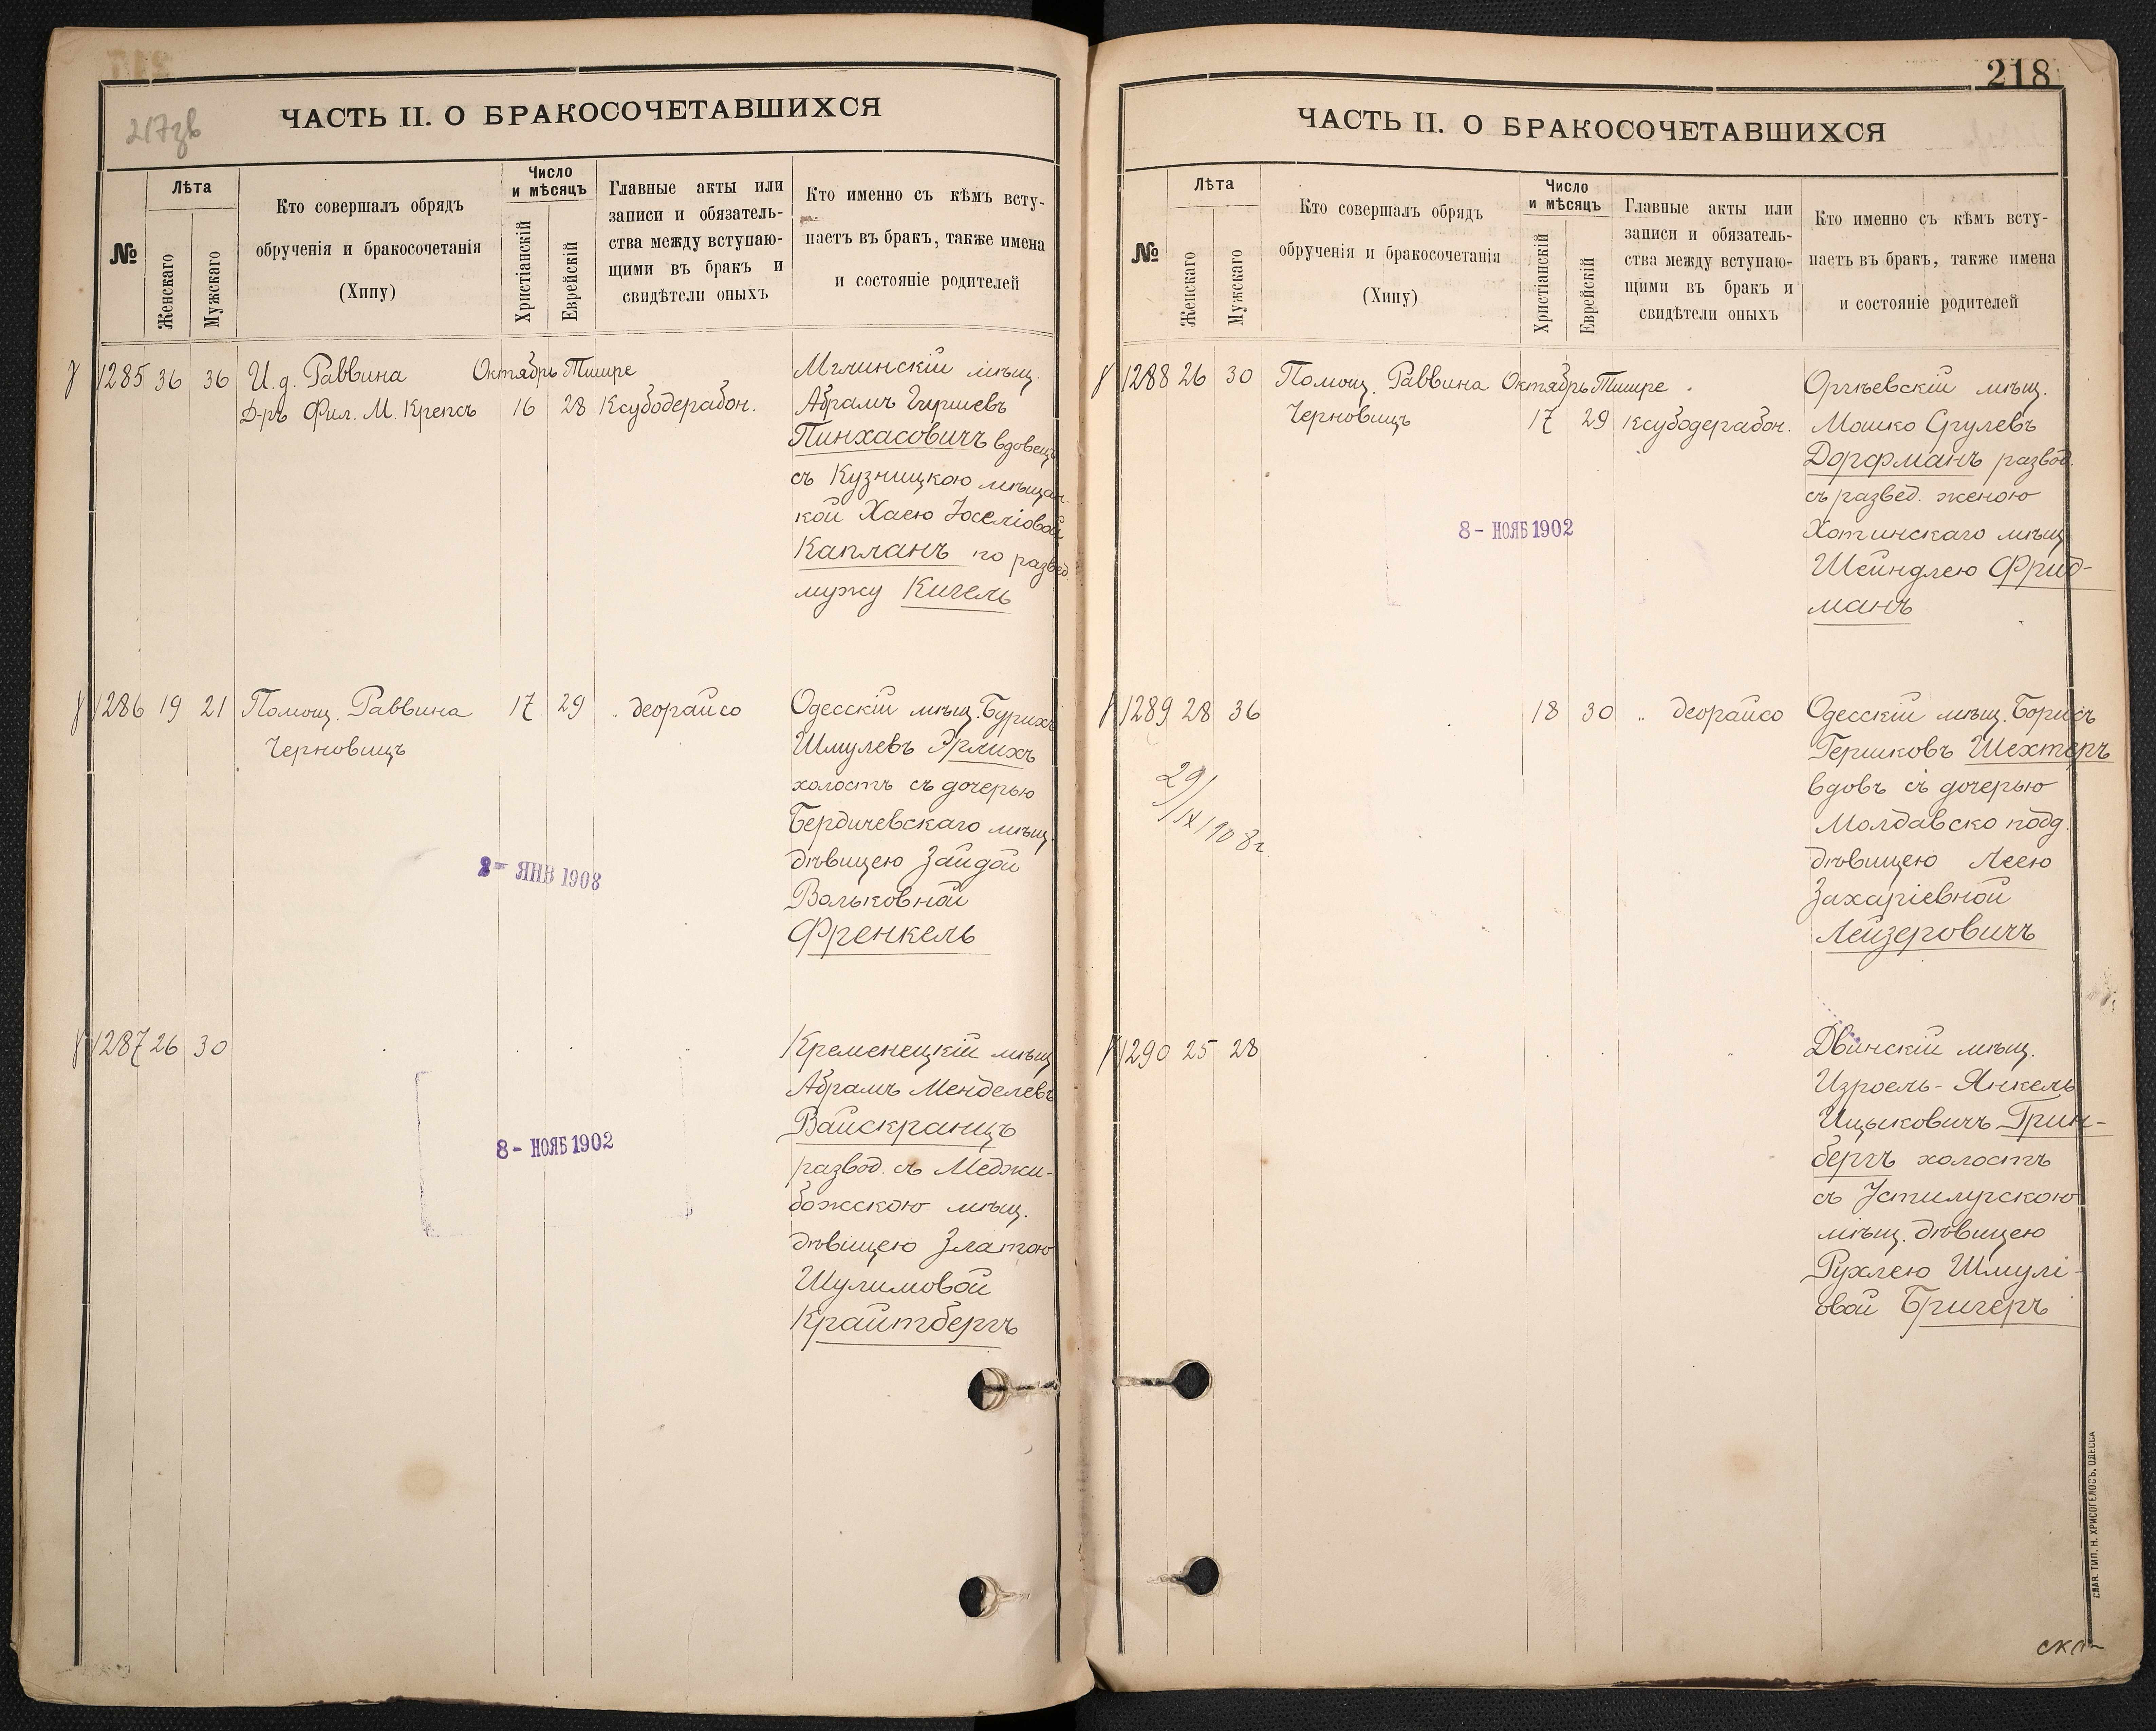 217зв
ЧАСТЬ II. О БРАКОСОЧЕТАВШИХСЯ
№
Лѣта
Женскаго
Мужскаго
Кто совершалъ обрядъ
обрученія и бракосочетанія
(Хипу)
Число
и мѣсяцъ
Христіанскій
Еврейскій
Главные акты или
записи и обязатель-
ства между вступаю-
щими въ бракъ и
свидѣтели оныхъ
Кто именно съ кѣмъ всту-
паетъ въ бракъ, также имена
и состояніе родителей
1285 36 36 И.д. Раввина Октябрь Тишре
Д-ръ Фил. М. Крепсъ 16 28 Ксубодерабон.
Мглинскій мѣщ.
Абрамъ Гиршевъ
Пинхасовичъ вдовецъ
съ Кузницкою мѣщан-
кой Хаею Іоселіовой
Капланъ по развед.
мужу Кигель
1286 19 21 Помощ. Раввина 17 29 „ деорайсо
Черновицъ
Одесскій мѣщ. Бурихъ
Шмулевъ Эрлихъ
холостъ съ дочерью
Бердичевскаго мѣщ.
дѣвицею Зайдой
Вольковной
Френкель
2- ЯНВ 1908
1287 26 30
Кременецкій мѣщ
Абрамъ Менделевъ
Вайскранцъ
развод. съ Меджи-
божскою мѣщ.
дѣвицею Златою
Шулимовой
Крайтбергъ
8- НОЯБ 1902
218
ЧАСТЬ II. О БРАКОСОЧЕТАВШИХСЯ
№
Лѣта
Женскаго
Мужскаго
Кто совершалъ обрядъ
обрученія и бракосочетанія
(Хипу)
Число
и мѣсяцъ
Христіанскій
Еврейскій
Главные акты или
записи и обязатель-
ства между вступаю-
щими въ бракъ и
свидѣтели оныхъ
Кто именно съ кѣмъ всту-
паетъ въ бракъ, также имена
и состояніе родителей
1288 26 30 Помощ. Раввина Октябрь Тишре
Черновицъ 17 29 ксубодерабон.
Оргѣевскій мѣщ.
Мошко Сгулевъ
Дорфманъ развод.
съ развед. женою
Хотинскаго мѣщ
Шейндлею Фрид-
манъ
8- НОЯБ 1902
1289 28 36 18 30 „ деорайсо
Одесскій мѣщ. Борисъ
Гершковъ Шехтеръ
вдовъ съ дочерью
Молдавско подд.
дѣвицею Леею
Захаріевной
Лейзеровичъ
29/IX 1908г.
1290 25 28
Двинскій мѣщ.
Изроель-Янкель
Ицыковичъ Грин-
бергъ холостъ
съ Устилугскою
мѣщ. дѣвицею
Рухлею Шмулі-
овой Бригеръ
СЛАВ. ТИП. Н. ХРИСОГЕЛОСЪ, ОДЕССА